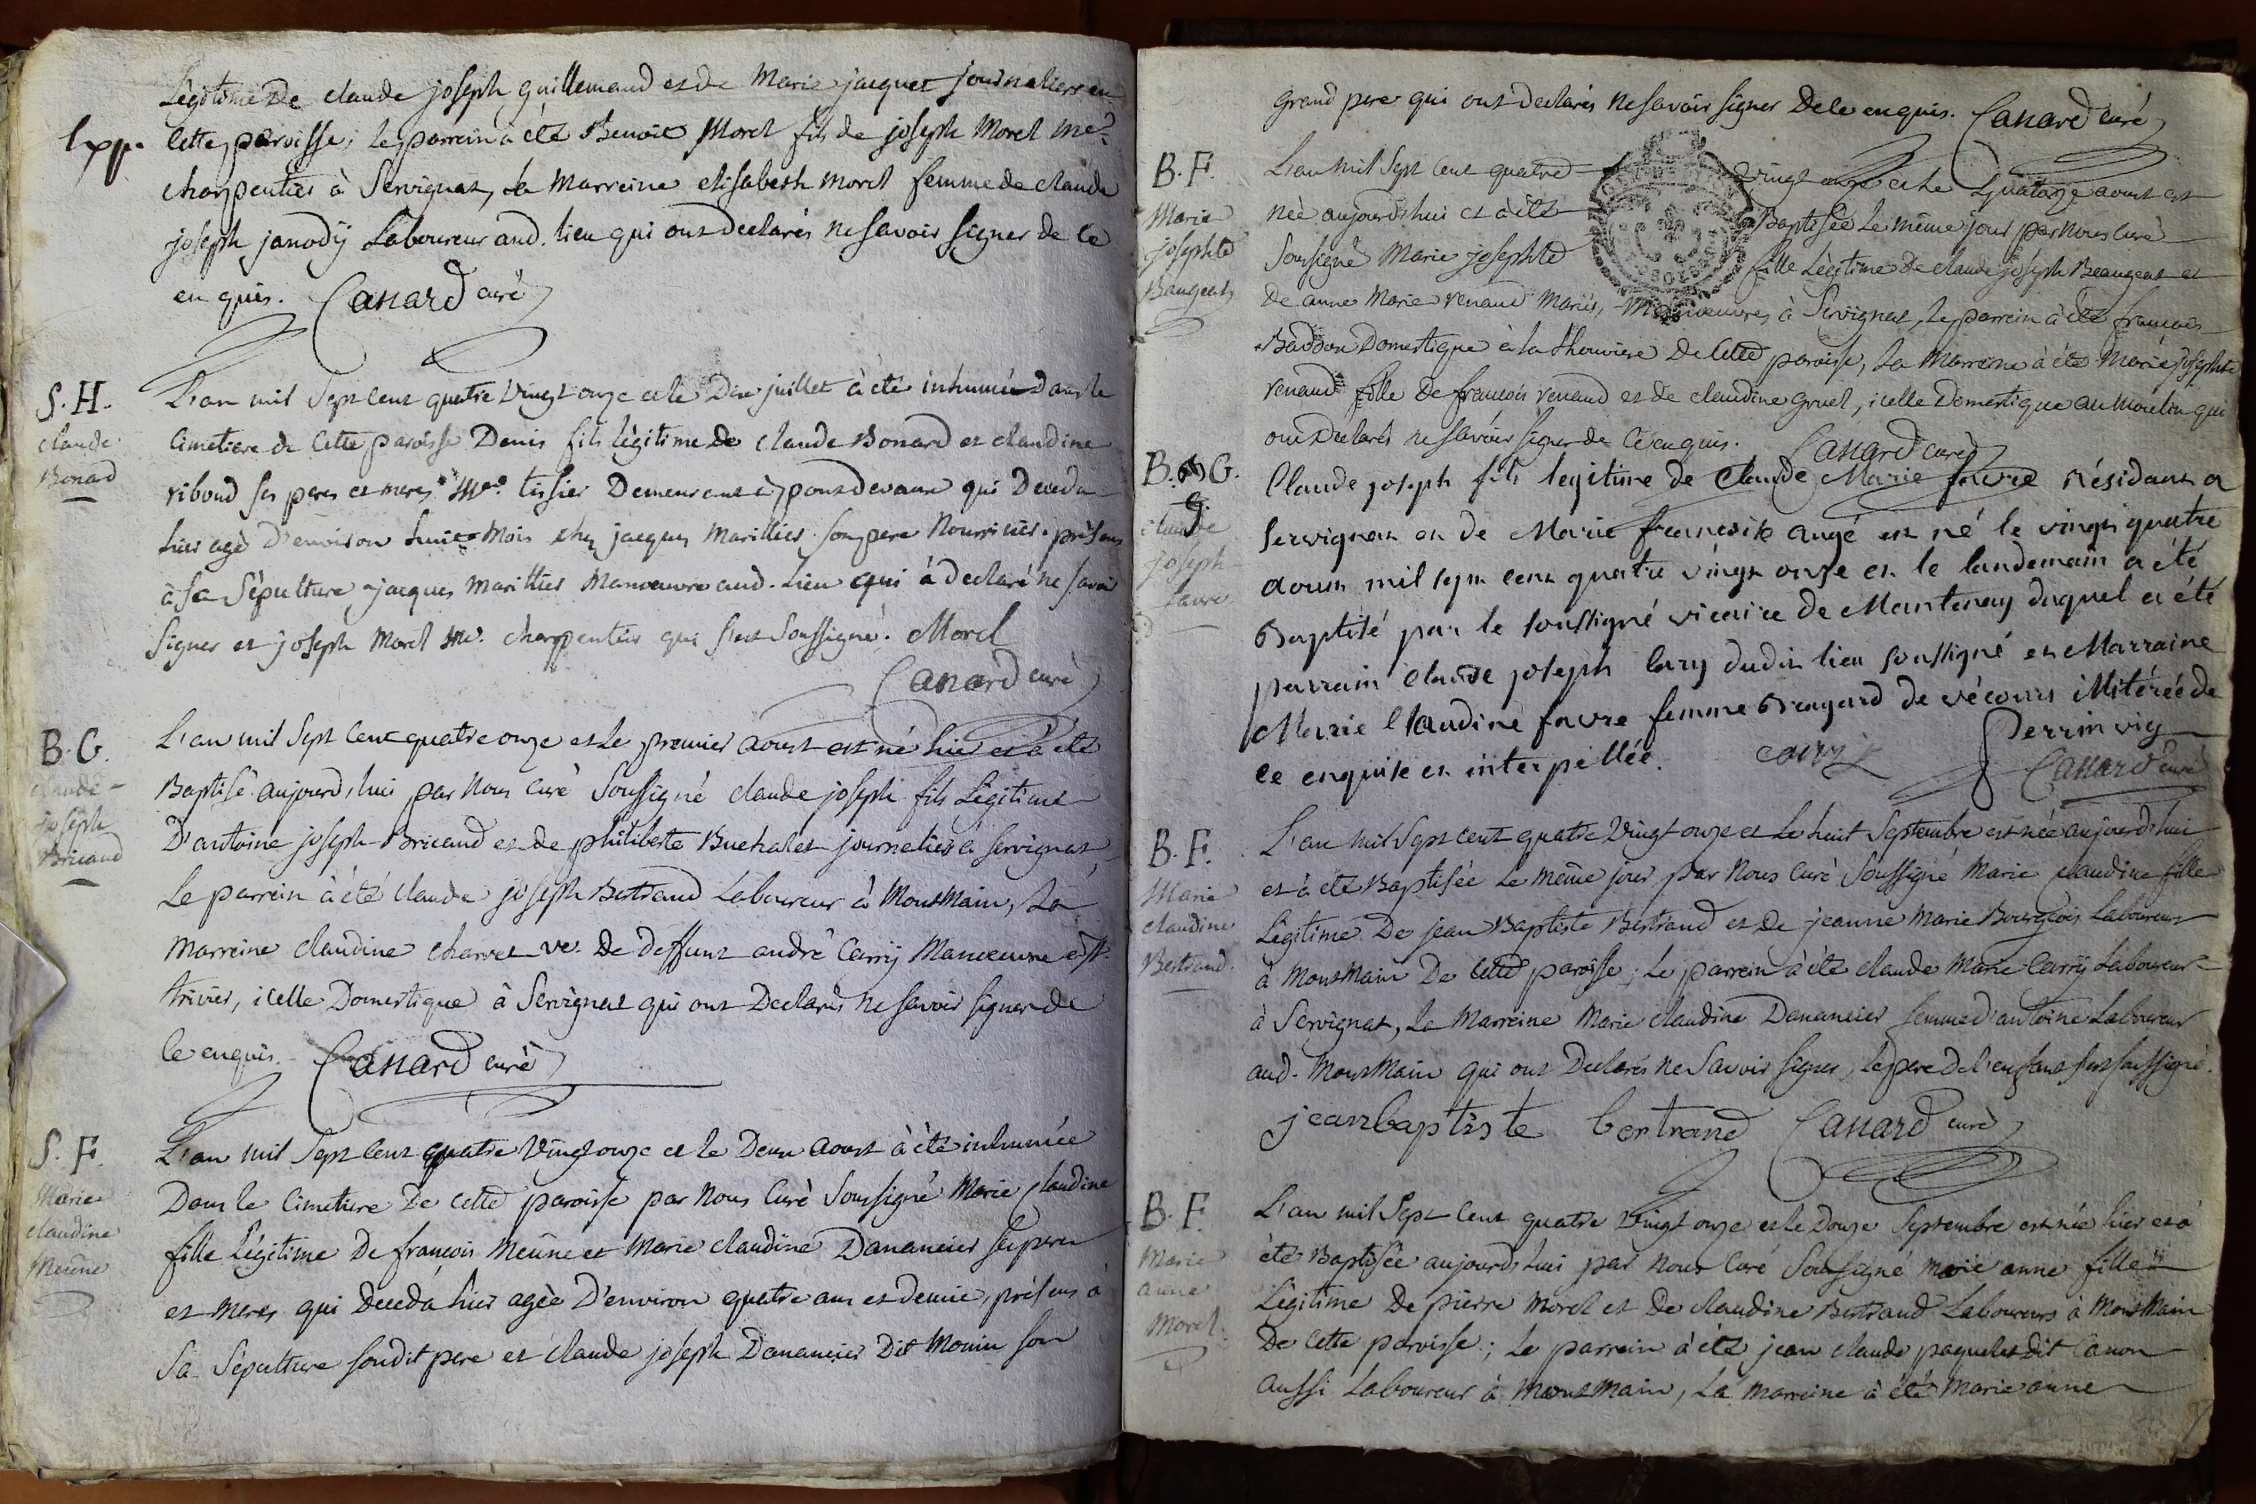 Légitime de claude joseph guillemaud et de Marie jacquet journaliers en
Exp. cette paroisse; le parrein à été Benoit Morel fils de joseph Morel me.
charpentier à Servignat, la Marreine elisabeth morel femme de claude
joseph janodÿ Laboureur aud. lieu qui ont declarés ne savoir signer de ce
enquis. Canard curé
S. H.
claude
Bonard
L'an mil Sept cent quatre vingt onze et le Dix juillet à été inhumé dans le
Cimetiere de cette paroisse Denis fils légitime de claude Bonard et claudine
riboud ses peres et meres Me. tissier Demeurant à pontdevaux qui Deceda
hier agé d'environ huit mois chez jacques Marillier son pere Nourricier. présens
à Sa Sépulture jacques Marillier Manoeuvre aud. Lieu qui à declaré ne savoir
signer et joseph Morel Me. charpentier qui s'est Soussigné. Morel
Canard curé
B. G.
claude
joseph
Bricaud
L'an mil Sept Cent quatre onze et le premier aoust est né hier et à été
Baptisé aujourd'hui par Nous Curé Soussigné claude joseph fils Légitime
D'antoine joseph Bricaud et de philiberte Buchalet journalier à servignat,
Le parrein à été claude joseph Bertrand Laboureur à MontMain, La
Marreine claudine charvet ve. De Deffunt andré Carrÿ Manoeuvre à St.
trivier, icelle Domestique à Servignat qui ont Declarés ne savoir signer de
Ce enquis. Canard curé
S. F.
Marie
claudine
Meûne
L'an mil Sept Cent quatre Vingt onze et le Deux aoust à été inhumée
Dans le Cimetiere De cette paroisse par Nous Curé Soussigné Marie claudine
fille légitime De francois Meûne et Marie claudine Dananciers ses peres
et meres qui Deceda hier agée D'environ quatre ans et demie, présens à
Sa Sépulture soudit pere et claude joseph Danancier Dit Monin son
grand pere qui ont declarés ne savoir signer De ce enquis. Canard curé
B. F.
Marie
josephte
Baugeat
L'an mil Sept Cent quatre vingt onze et le Quatorze aoust est
née aujourd'hui et à été Baptisée Le même jour par Nous Curé
Soussigné Marie josephte fille Légitime De claude joseph Beaugeat et
de anne Marie renaud Mariés, Manoeuvres à Servignat, le parrein à été francois
Baddon Domestique à la thouviere De Cette paroisse, La Marreine à été Marie josephte
renaud fille De francois renaud et de claudine gruel, icelle Domestique au Moulin qui
ont Declarés ne savoir signer de Ce enquis. Canard curé
B. G.
claude
joseph
favre
Claude joseph fils legitime de Claude Marie favre résidant a
servignat et de Marie francoise augé est né le vingt quatre
aoust mil sept cent quatre vingt onze et le landemain a été
Baptisé par le soussigné vicaire de Mantenay duquel a été
parrain claude joseph Cary dudit lieu soussigné et Marraine
Marie Claudine favre femme Brugard de vécours illitérée de
ce enquise et interpellée. carry Perrin vic
Canard curé
B. F.
Marie
claudine
Bertrand.
L'an mil Sept cent quatre Vingt onze et Le huit Septembre est née aujourd'hui
et à été Baptisée Le même jour par Nous Curé Soussigné Marie claudine fille
Légitime De jean Baptiste Bertrand et De jeanne Marie Bourgeois Laboureurs
à MontMain De cette paroisse; Le parrein à été claude Marie Carrÿ Laboureur
à Servignat, La Marreine Marie claudine Danancier femme d'antoine Laboureur
aud. MontMain qui ont Declarés ne Savoir signer, le pere de l'enfant s'est soussigné.
jeanbaptiste bertrand Canard curé
B. F.
Marie
anne
Morel.
L'an mil Sept Cent quatre Vingt onze et le Douze Septembre est née hier et à
été Baptisée aujourd'hui par Nous Curé Soussigné marie anne fille
Légitime De pierre Morel et De claudine Bertrand Laboureurs à MontMain
De Cette paroisse; Le parrein à été jean claude paquelet dit Canon
aussi Laboureur à MontMain, La marreine à été Marie anne